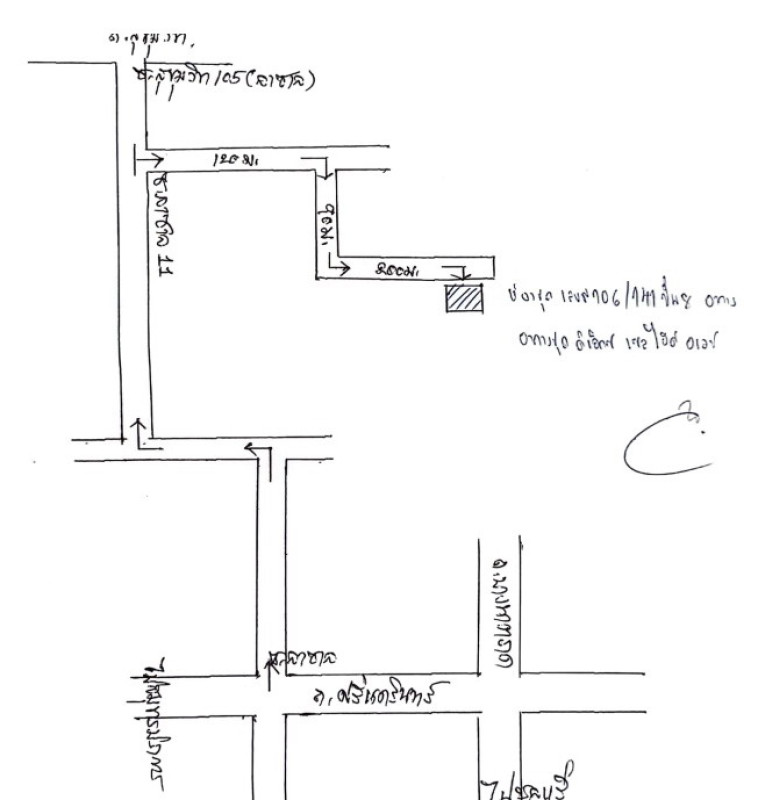 ถ.สุขุมวิท
ซ.สุขุมวิท 105 (ลาซาล)
120 ม.
ซ.ลาซาล 11
ม.
200 ม.
ห้องชุด เลขที่ 106/141 ชั้น 8 อาคาร
อาคารชุด
ซ.ลาซาล
ถ.ศรีนครินทร์
ไปสมุทรปราการ
ถ.บางนาตราด
ไปชลบุรี